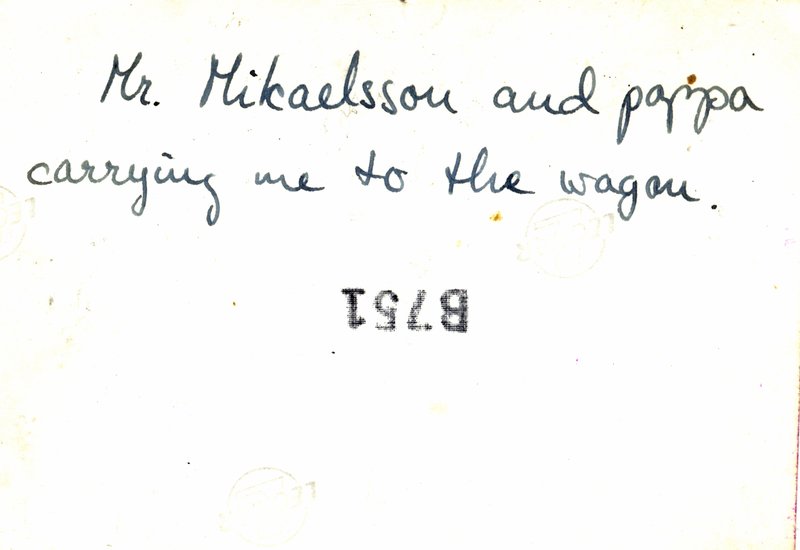 Mr. Mikaelsson and pappa
carrying me to the wagon.
B751